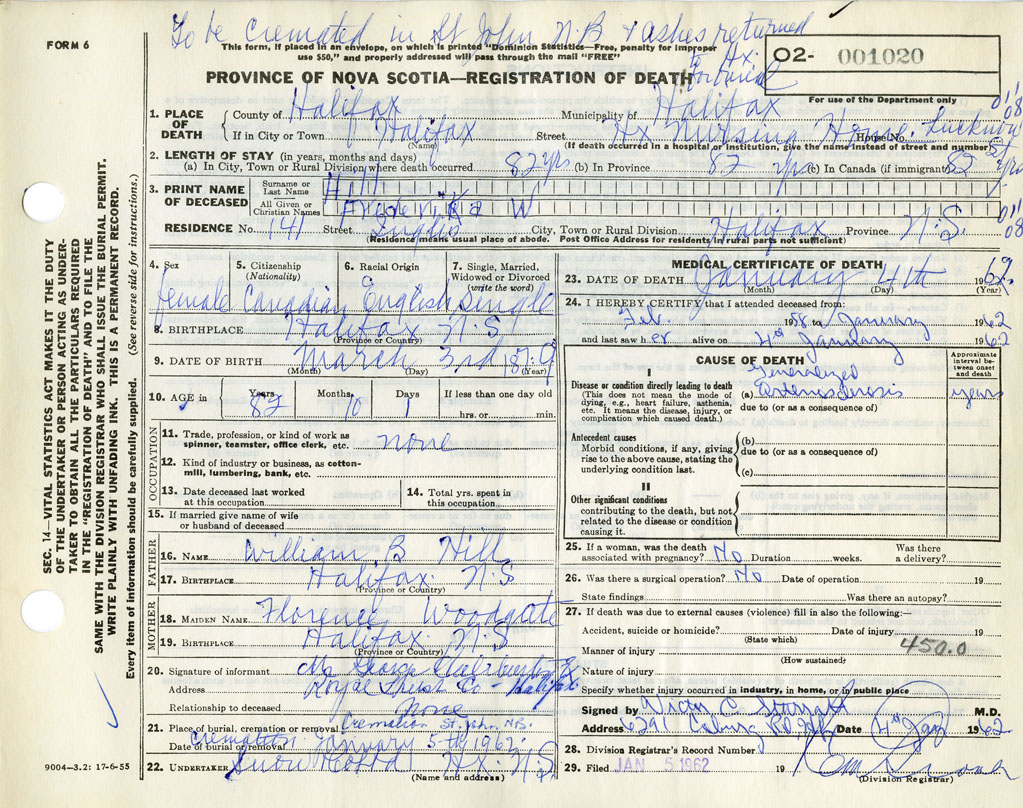 To be cremated in St John N.B & ashes returned
to Hx.
for burial
FORM 6
This form, if placed in an envelope, on which is printed "Dominion Statistics—Free, penalty for improper
use $50," and properly addressed will pass through the mail "FREE"
O2- 001020
For use of the Department only
PROVINCE OF NOVA SCOTIA—REGISTRATION OF DEATH
1. PLACE OF DEATH
County of Halifax Municipality of Halifax
If in City or Town Halifax Street Hx Nursing Home House No.
(Name) (If death occurred in a hospital or institution, give the name instead of street and number)
2. LENGTH OF STAY (in years, months and days)
(a) In City, Town or Rural Division where death occurred 82 yrs (b) In Province 82 yrs (c) In Canada (if immigrant) 82 yrs
3. PRINT NAME OF DECEASED
Surname or Last Name Hill
All Given or Christian Names Frederika W
RESIDENCE No. 141 Street Inglis City, Town or Rural Division Halifax Province N.S.
(Residence means usual place of abode. Post Office Address for residents in rural parts not sufficient)
4. Sex 5. Citizenship (Nationality) 6. Racial Origin 7. Single, Married, Widowed or Divorced (write the word)
female Canadian English single
8. BIRTHPLACE Halifax N.S
(Province or Country)
9. DATE OF BIRTH March 3rd 1879
(Month) (Day) (Year)
10. AGE in Years 82 Months 10 Days 1 If less than one day old
hrs. or min.
OCCUPATION
11. Trade, profession, or kind of work as
spinner, teamster, office clerk, etc. none
12. Kind of industry or business, as cotton-
mill, lumbering, bank, etc.
13. Date deceased last worked
at this occupation.
14. Total yrs. spent in
this occupation
15. If married give name of wife
or husband of deceased
FATHER
16. NAME William B Hill
17. BIRTHPLACE Halifax N.S
(Province or Country)
MOTHER
18. MAIDEN NAME Florence Woodgate
19. BIRTHPLACE Halifax N.S
(Province or Country)
20. Signature of informant George
Address Royal Trust Co - Halifax
Relationship to deceased None
21. Place of burial, cremation or removal Cremation St. John, N.B.
Cremation
Date of burial or removal January 5th 1962
22. UNDERTAKER Snow Hx. N.S
(Name and address)
MEDICAL CERTIFICATE OF DEATH
23. DATE OF DEATH January 4th 1962
(Month) (Day) (Year)
24. I HEREBY CERTIFY that I attended deceased from:
Feb. to January 1962
and last saw her alive on 4th January 1962
CAUSE OF DEATH
Approximate interval between onset and death
I
Disease or condition directly leading to death
(This does not mean the mode of
dying, e.g., heart failure, asthenia,
etc. It means the disease, injury, or
complication which caused death.)
Generalized
(a) Arteriosclerosis years
due to (or as a consequence of)
Antecedent causes
Morbid conditions, if any, giving
rise to the above cause, stating the
underlying condition last.
(b)
due to (or as a consequence of)
(c)
II
Other significant conditions
contributing to the death, but not
related to the disease or condition
causing it.
25. If a woman, was the death
associated with pregnancy? No Duration weeks. Was there
a delivery?
26. Was there a surgical operation? No Date of operation 19
State findings Was there an autopsy?
27. If death was due to external causes (violence) fill in also the following:—
Accident, suicide or homicide? Date of injury 19
(State which)
Manner of injury 450.0
(How sustained)
Nature of injury
Specify whether injury occurred in industry, in home, or in public place
Signed by M.D.
Address 6291 Coburg Rd Hfx Date 4th Jan 1962
28. Division Registrar's Record Number
29. Filed JAN 5 1962
(Division Registrar)
SEC. 14—VITAL STATISTICS ACT MAKES IT THE DUTY
OF THE UNDERTAKER OR PERSON ACTING AS UNDER-
TAKER TO OBTAIN ALL THE PARTICULARS REQUIRED
IN THE "REGISTRATION OF DEATH" AND TO FILE THE
SAME WITH THE DIVISION REGISTRAR WHO SHALL ISSUE THE BURIAL PERMIT.
WRITE PLAINLY WITH UNFADING INK. THIS IS A PERMANENT RECORD.
Every item of information should be carefully supplied. (See reverse side for instructions.)
9004-3.2: 17-6-55